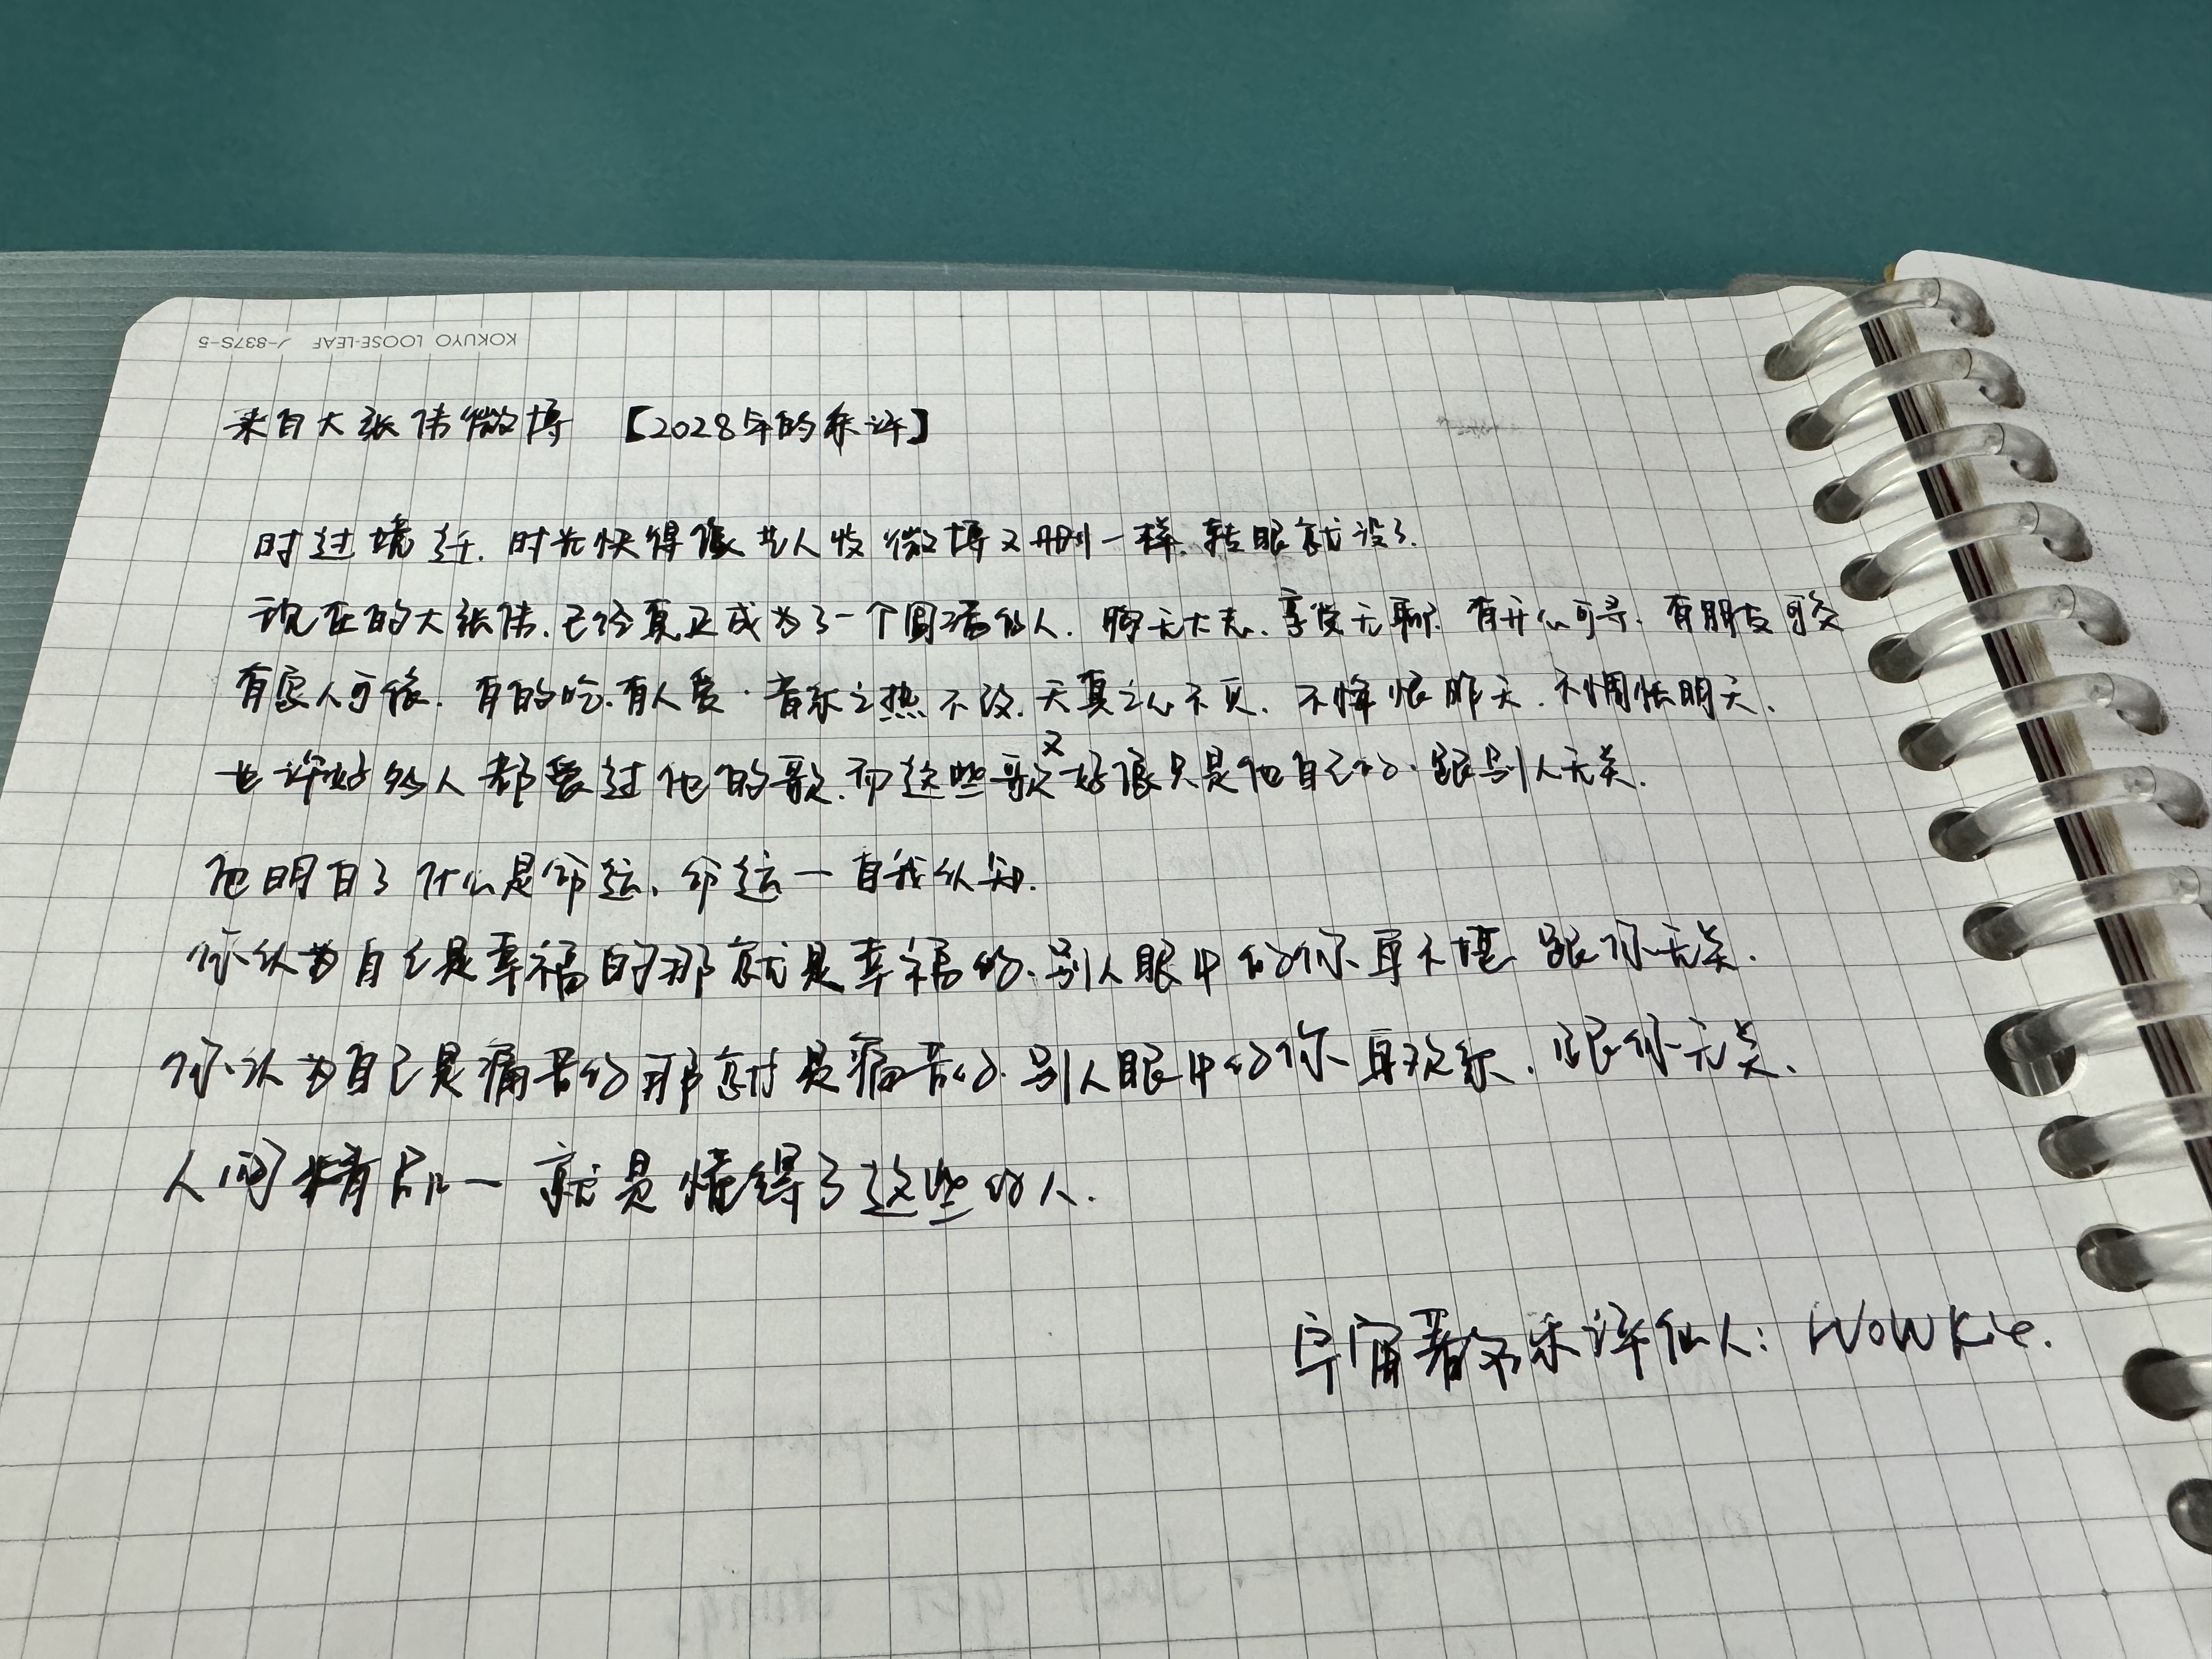 KOKUYO LOOSE-LEAF ノ-837S-5
来自大张伟微博 【2028年的乐评】
时过境迁.时光快得像艺人收微博又删一样.转眼就没了.
现在的大张伟.已经真正成为了一个圆活仙人.胸无大志.享受无聊.有开心可寻.有朋友可交
有家人可依.有的吃.有人爱.音乐之热不改.天真之心不见.不悔恨昨天.不惆怅明天.
也许好多人都爱过他的歌.而这些歌又好像只是他自己的.跟别人无关.
他明白了什么是命运.命运一自我认知.
你认为自己是幸福的那就是幸福的.别人眼中的你再不堪 跟你无关.
你认为自己是痛苦的那就是痛苦的.别人眼中的你再欢乐.跟你无关.
人间精品一就是懂得了这些的人.
宇宙著名乐评仙人:WOWKie.